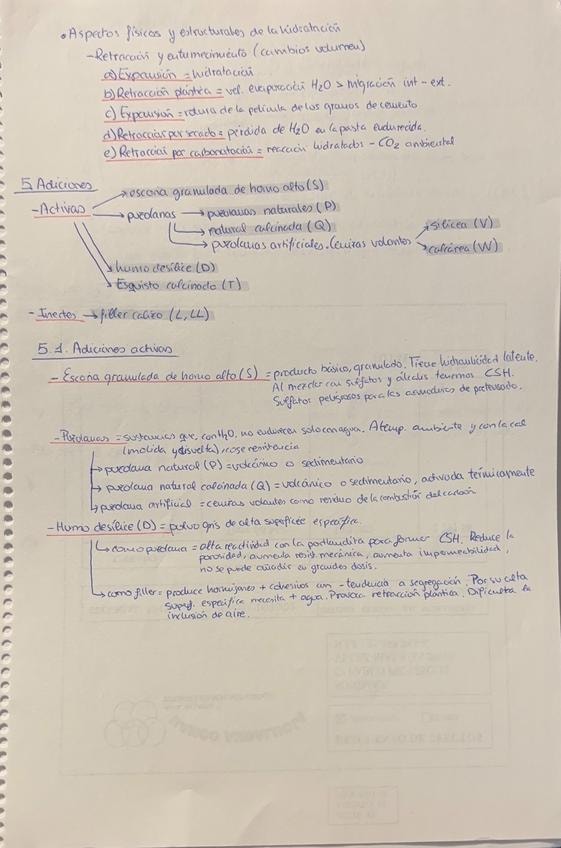 • Aspectos físicos y estructurales de la hidratación
- Retracción y entumecimiento (cambios volumen)
a) Expansión = hidratación
b) Retracción plástica = vel. evaporación H₂O > migración int - ext.
c) Expansión = rotura de la película de los granos de cemento
d) Retracción por secado = pérdida de H₂O en la pasta endurecida.
e) Retracción por carbonatación = reacción hidratados - CO₂ ambiental
5. Adiciones
- Activas → escoria granulada de horno alto (S)
→ puzolanas → puzolanas naturales (P)
→ natural calcinada (Q)
→ puzolanas artificiales. Cenizas volantes → silícea (V)
→ calcárea (W)
→ humo de sílice (D)
→ Esquisto calcinado (T)
- Inertes → filler calizo (L, LL)
5.1. Adiciones activas
- Escoria granulada de horno alto (S) = producto básico, granulado. Tiene hidraulicidad latente.
Al mezclar con sulfatos y álcalis tenemos CSH.
Sulfatos peligrosos para las armaduras de pretensado.
- Puzolanas = sustancias que, con H₂O, no endurecen solo con agua. A temp. ambiente y con la cal
(molida y disuelta), resistencia
→ puzolana natural (P) = volcánico o sedimentario
→ puzolana natural calcinada (Q) = volcánico o sedimentario, activada térmicamente
→ puzolana artificial = cenizas volantes como residuo de la combustión del carbón
- Humo de sílice (D) = polvo gris de alta superficie específica.
→ como puzolana = alta reactividad con la portlandita para formar CSH. Reduce la
porosidad, aumenta resist. mecánica, aumenta impermeabilidad,
no se puede añadir en grandes dosis.
→ como filler = produce hormigones + cohesivos con - tendencia a segregación. Por su alta
superf. específica necesita + agua. Provoca retracción plástica. Dificulta la
inclusión de aire.